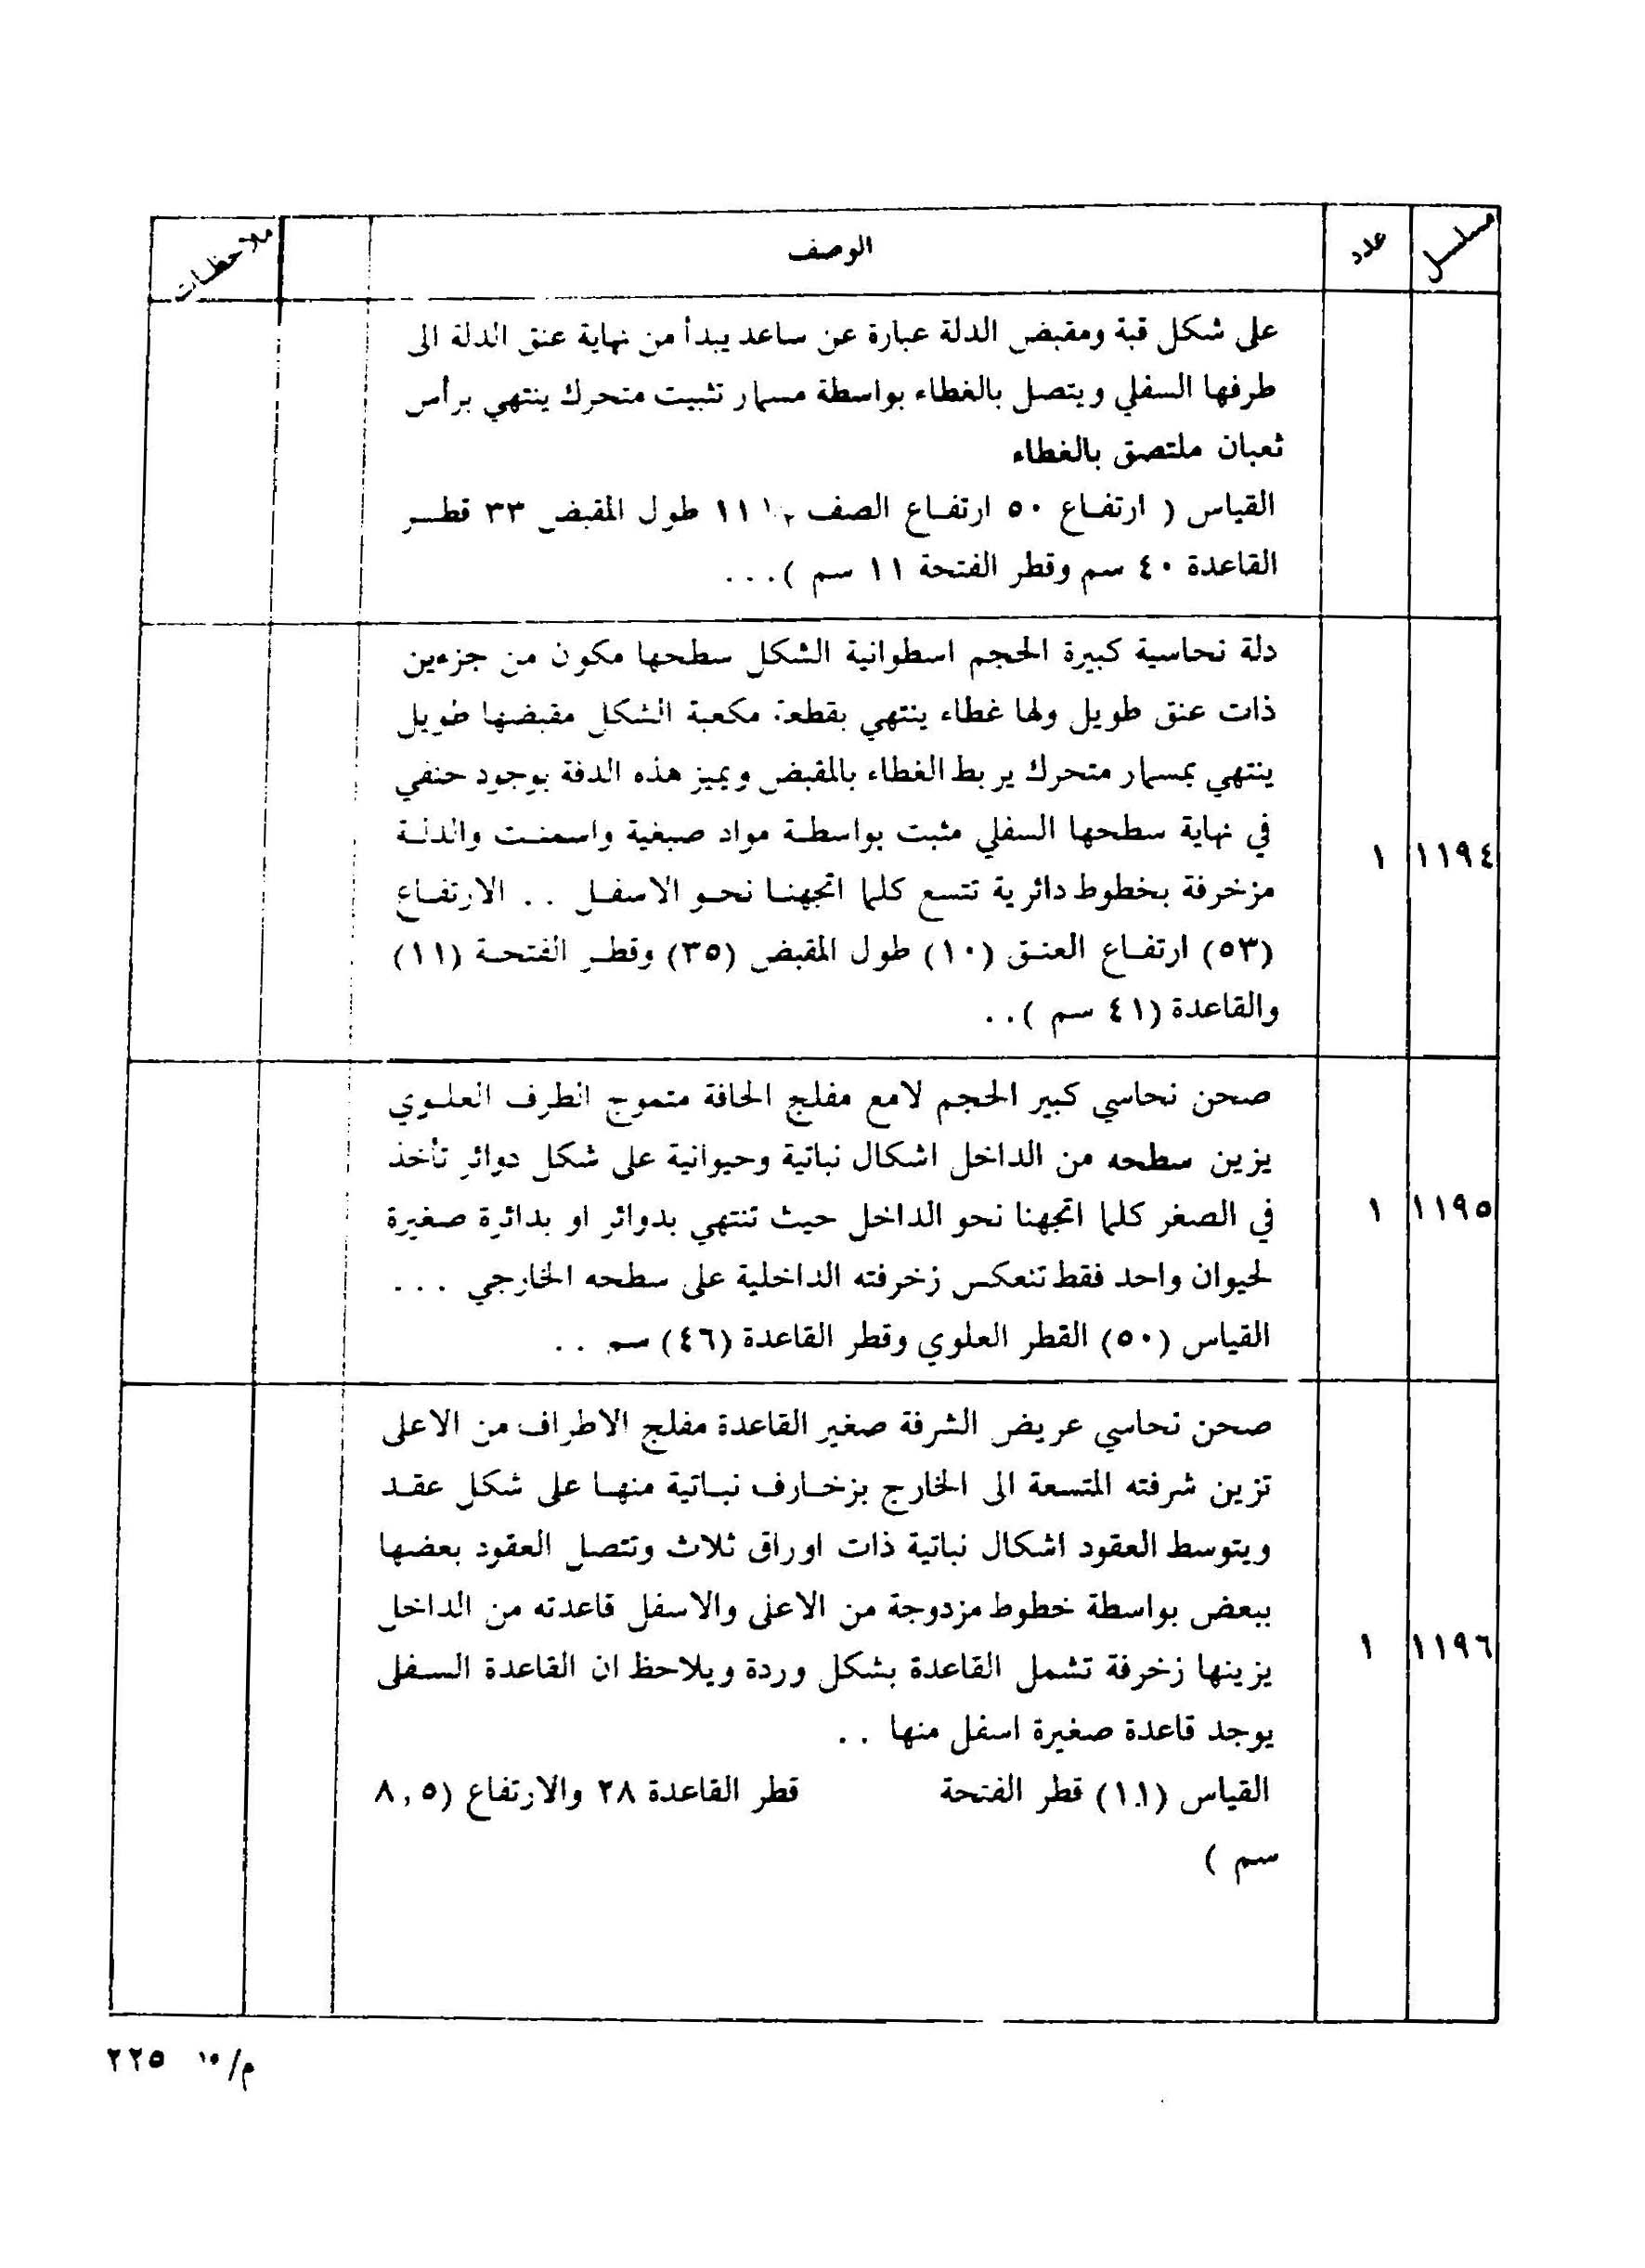 مسلسل عدد الوصف ملاحظات
على شكل قبة ومقبض الدلة عبارة عن ساعد يبدأ من نهاية عنق الدلة الى
طرفها السفلي ويتصل بالغطاء بواسطة مسمار تثبيت متحرك ينتهي برأس
ثعبان ملتصق بالغطاء
القياس ( ارتفـاع ٥٠ ارتفـاع الصف ١١ طول المقبض ٣٣ قطـر
القاعدة ٤٠ سم وقطر الفتحة ١١ سم ) . . .
دلة نحاسية كبيرة الحجم اسطوانية الشكل سطحها مكون من جزءين
ذات عنق طويل ولها غطاء ينتهي بقطعة مكعبة الشكل مقبضها طويل
ينتهي بمسمار متحرك يربط الغطاء بالمقبض ويميز هذه الدفة بوجود حنفي
١١٩٤ ١ في نهاية سطحها السفلي مثبت بواسطـة مواد صبغية واسمنـت والدلـة
مزخرفة بخطوط دائرية تتسع كلما اتجهنـا نحـو الاسفـل . . الارتفـاع
(٥٣) ارتفـاع العنـق (١٠) طول المقبض (٣٥) وقطـر الفتحـة (١١)
والقاعدة (٤١ سم ) . .
صحن نحاسي كبير الحجم لامع مفلج الحافة متموج الطرف العلـوي
يزين سطحه من الداخل اشكال نباتية وحيوانية على شكل دوائر تأخذ
١١٩٥ ١ في الصغر كلما اتجهنا نحو الداخل حيث تنتهي بدوائر او بدائرة صغيرة
لحيوان واحد فقط تنعكس زخرفته الداخلية على سطحه الخارجي . . .
القياس (٥٠) القطر العلوي وقطر القاعدة (٤٦) سم . .
صحن نحاسي عريض الشرفة صغير القاعدة مفلج الاطراف من الاعلى
تزين شرفته المتسعة الى الخارج بزخـارف نبـاتية منهـا على شكل عقـد
ويتوسط العقود اشكال نباتية ذات اوراق ثلاث وتتصل العقود بعضها
ببعض بواسطة خطوط مزدوجة من الاعلى والاسفل قاعدته من الداخل
١١٩٦ ١ يزينها زخرفة تشمل القاعدة بشكل وردة ويلاحظ ان القاعدة السـفلى
يوجد قاعدة صغيرة اسفل منها . .
القياس (١١) قطر الفتحة قطر القاعدة ٢٨ والارتفاع (٨,٥
سم )
م/١٥ ٢٢٥